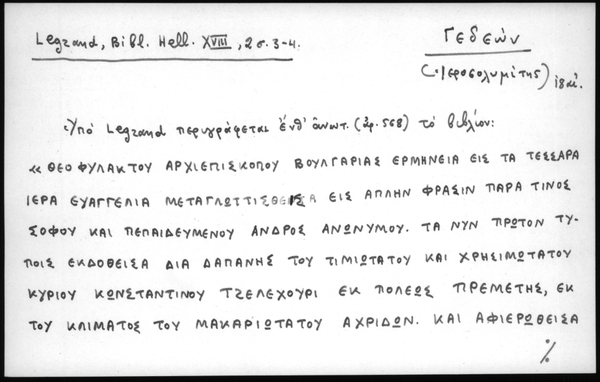 Legrand, Bibl. Hell. XVIII, 2 σ. 3-4.
Γεδεών
(Ἱεροσολυμίτης) ιδ αἰ.
Ὑπὸ Legrand περιγράφεται ἔνθ' ἀνωτ. (ἀρ. 568) τὸ βιβλίον:
«ΘΕΟΦΥΛΑΚΤΟΥ ΑΡΧΙΕΠΙΣΚΟΠΟΥ ΒΟΥΛΓΑΡΙΑΣ ΕΡΜΗΝΕΙΑ ΕΙΣ ΤΑ ΤΕΣΣΑΡΑ
ΙΕΡΑ ΕΥΑΓΓΕΛΙΑ ΜΕΤΑΓΛΩΤΤΙΣΘΕΙΣΑ ΕΙΣ ΑΠΛΗΝ ΦΡΑΣΙΝ ΠΑΡΑ ΤΙΝΟΣ
ΣΟΦΟΥ ΚΑΙ ΠΕΠΑΙΔΕΥΜΕΝΟΥ ΑΝΔΡΟΣ ΑΝΩΝΥΜΟΥ. ΤΑ ΝΥΝ ΠΡΩΤΟΝ ΤΥ-
ΠΟΙΣ ΕΚΔΟΘΕΙΣΑ ΔΙΑ ΔΑΠΑΝΗΣ ΤΟΥ ΤΙΜΙΩΤΑΤΟΥ ΚΑΙ ΧΡΗΣΙΜΩΤΑΤΟΥ
ΚΥΡΙΟΥ ΚΩΝΣΤΑΝΤΙΝΟΥ ΤΖΕΛΕΧΟΥΡΙ ΕΚ ΠΟΛΕΩΣ ΠΡΕΜΕΤΗΣ, ΕΚ
ΤΟΥ ΚΛΙΜΑΤΟΣ ΤΟΥ ΜΑΚΑΡΙΩΤΑΤΟΥ ΑΧΡΙΔΩΝ. ΚΑΙ ΑΦΙΕΡΩΘΕΙΣΑ
%